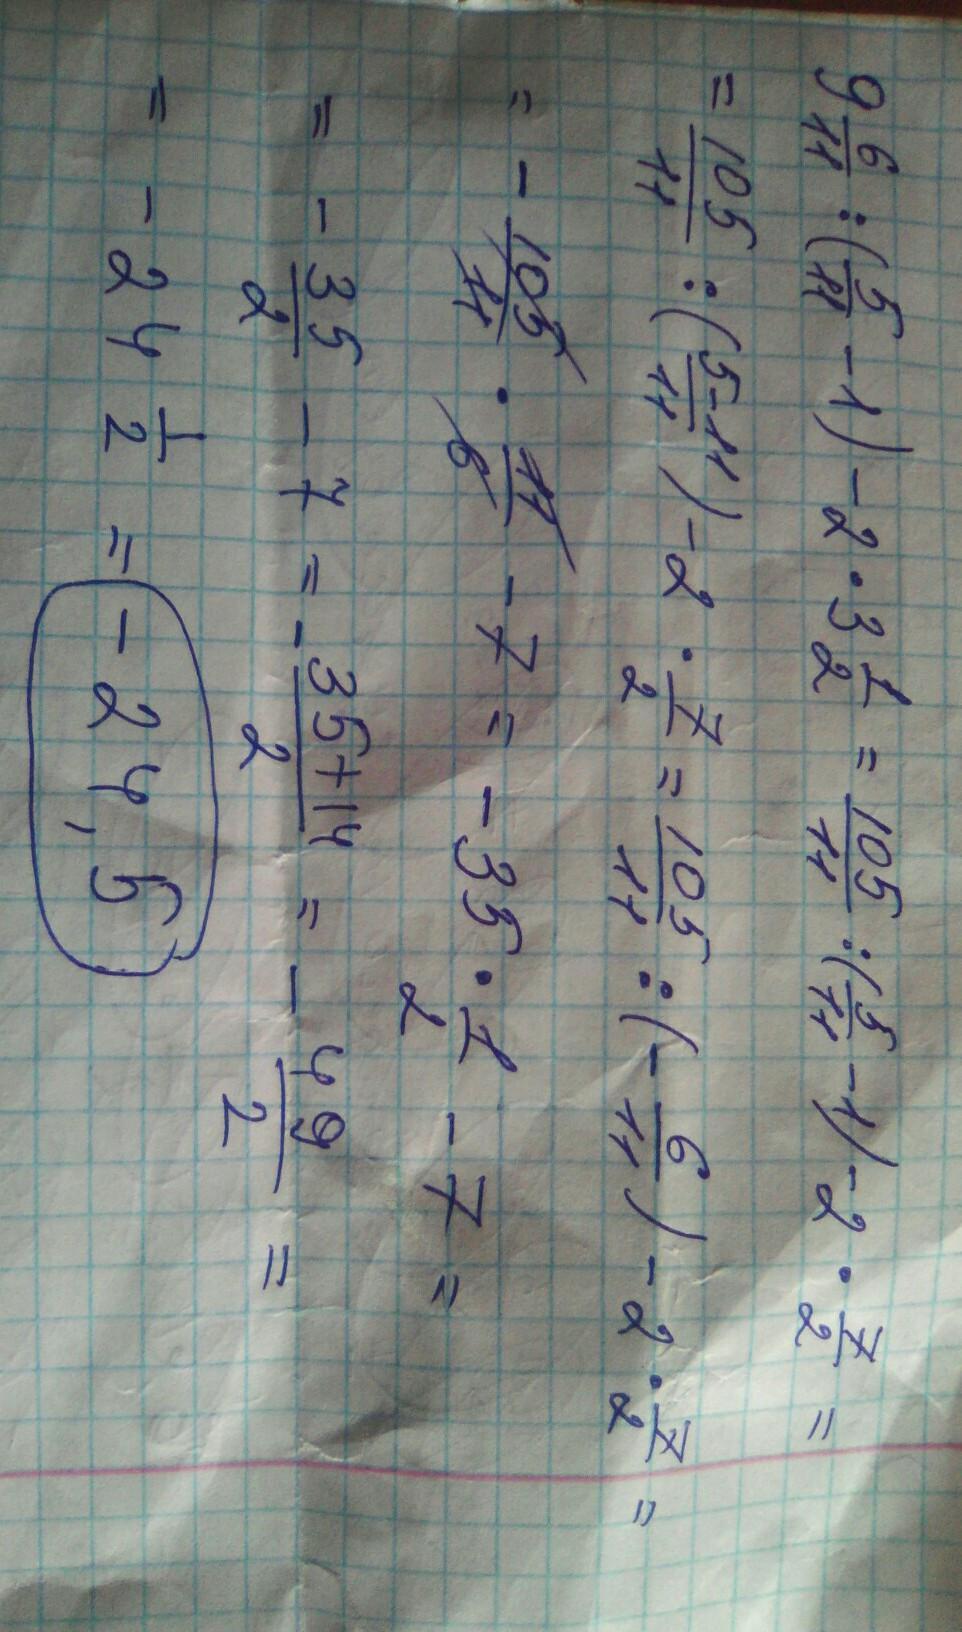 9 6/11 : (5/11 - 1) - 2 · 3 1/2 = 105/11 : (5/11 - 1) - 2 · 7/2 =
= 105/11 : (5-11/11) - 2 · 7/2 = 105/11 : (- 6/11) - 2 · 7/2 =
= - 105/11 · 11/6 - 7 = - 35 · 1/2 - 7 =
= - 35/2 - 7 = - 35+14/2 = - 49/2 =
= - 24 1/2 = - 24,5